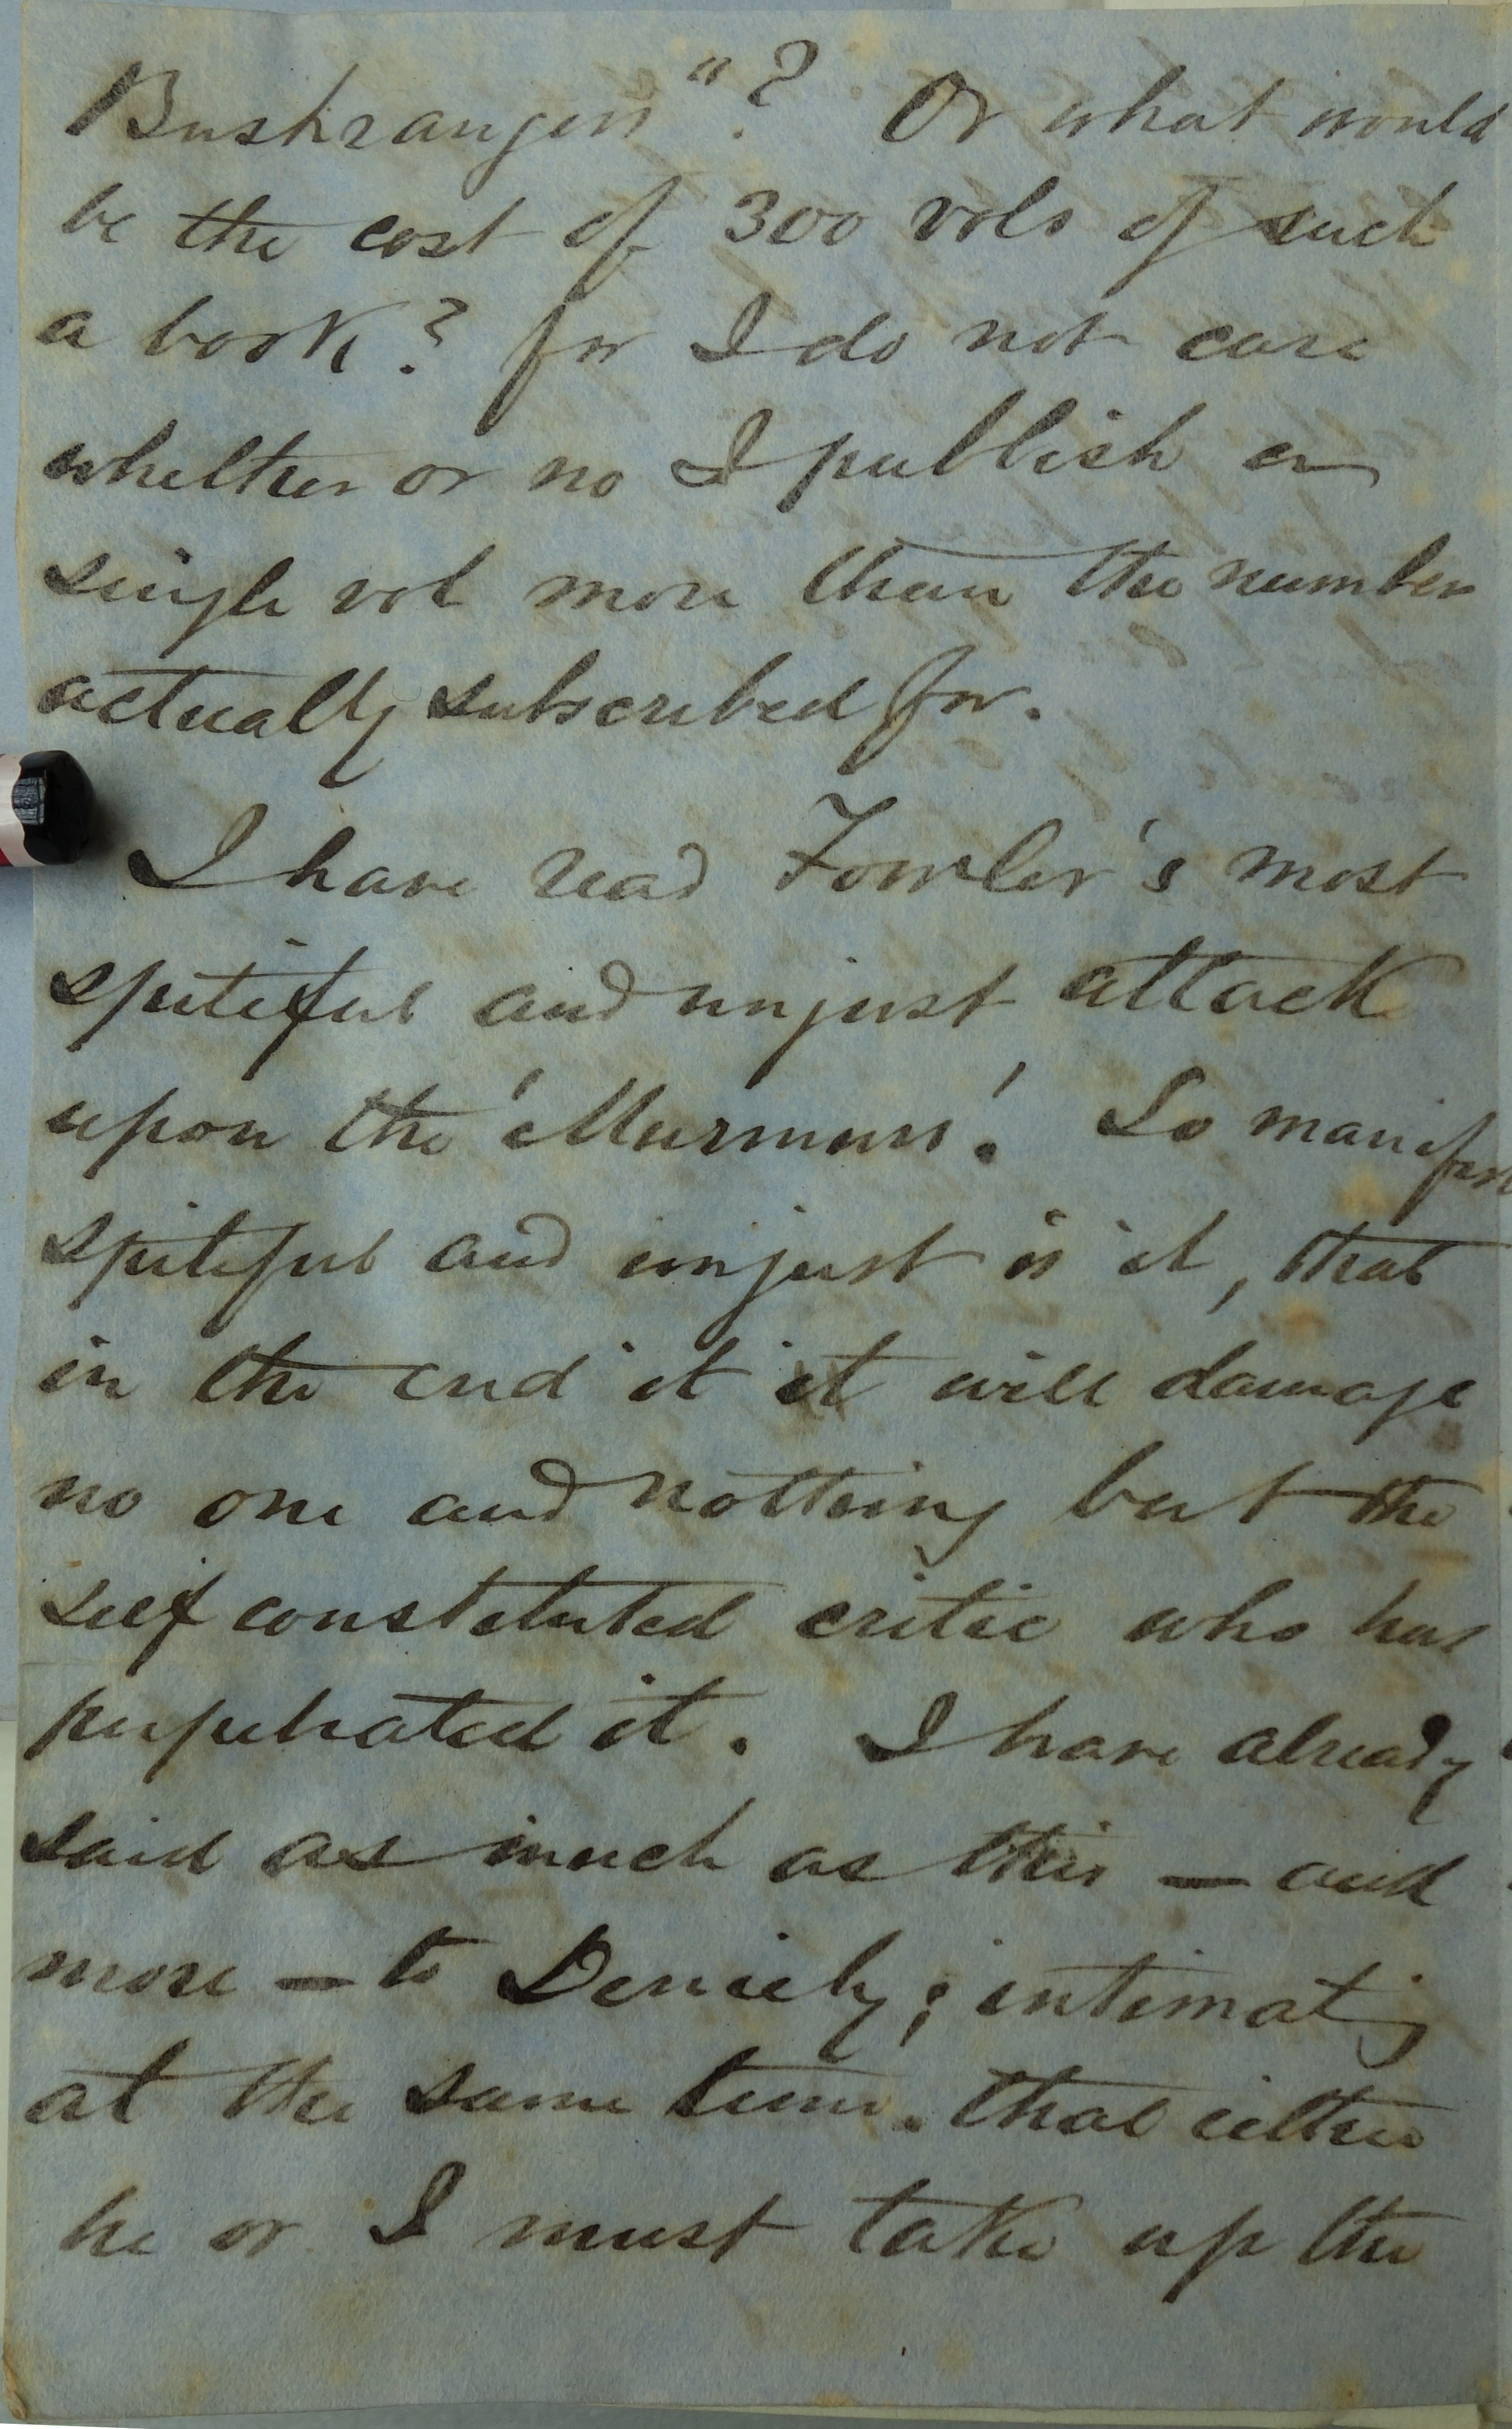 Bushrangers"? Or what would
be the cost of 300 vols of such
a book? for I do not care
whether or no I publish a
single vol more than the number
actually subscribed for.
I have read Fowler's most
spiteful and unjust attack
upon the 'Murmurs'. So manifest
spiteful and unjust is it, that
in the end it it will damage
no one and nothing but the
self constituted critic who has
perpetrated it. I have already
said as much as this — and
more — to Deniehy; intimating
at the same time. that either
he or I must take up the